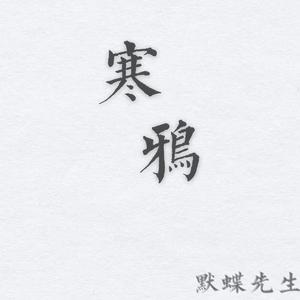 寒
鴉
默蝶先生